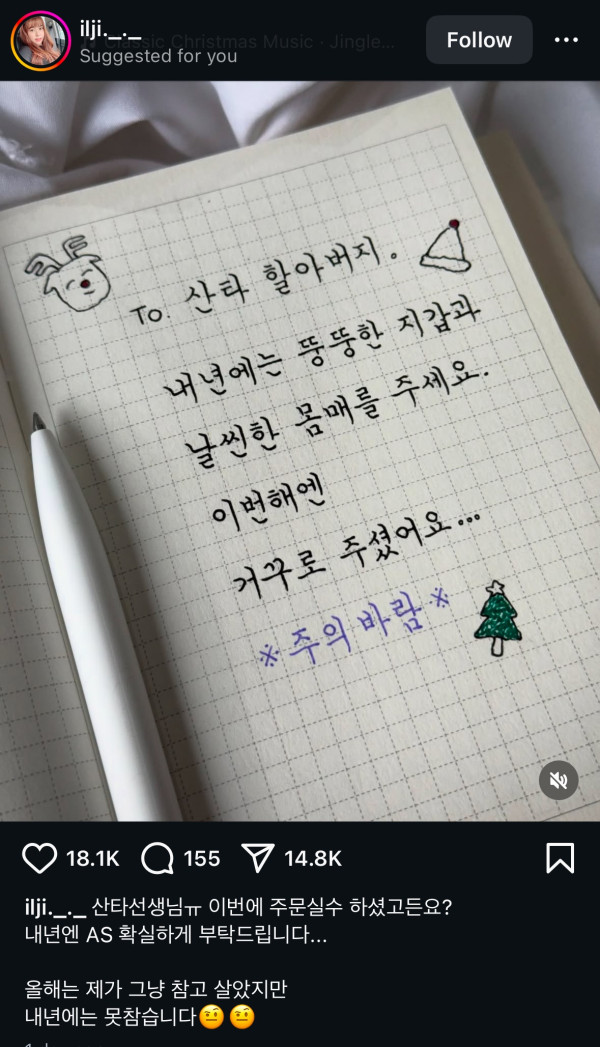 ilji._._
Classic Christmas Music · Jingle...
Suggested for you
Follow
To. 산타 할아버지.
내년에는 뚱뚱한 지갑과
날씬한 몸매를 주세요.
이번해엔
거꾸로 주셨어요...
※ 주의 바람 ※
18.1K
155
14.8K
ilji._._ 산타선생님ㅠ 이번에 주문실수 하셨고든요?
내년엔 AS 확실하게 부탁드립니다...
올해는 제가 그냥 참고 살았지만
내년에는 못참습니다🤨 🤨